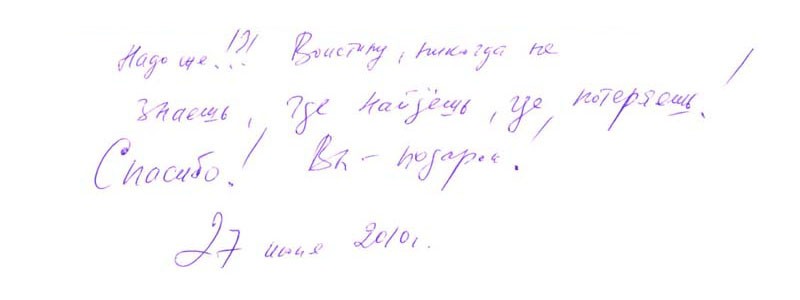 Надо же!?! Воистину, никогда не
знаешь, где найдёшь, где, потеряешь!
Спасибо! Вы – подарок!
27 июня 2010г.